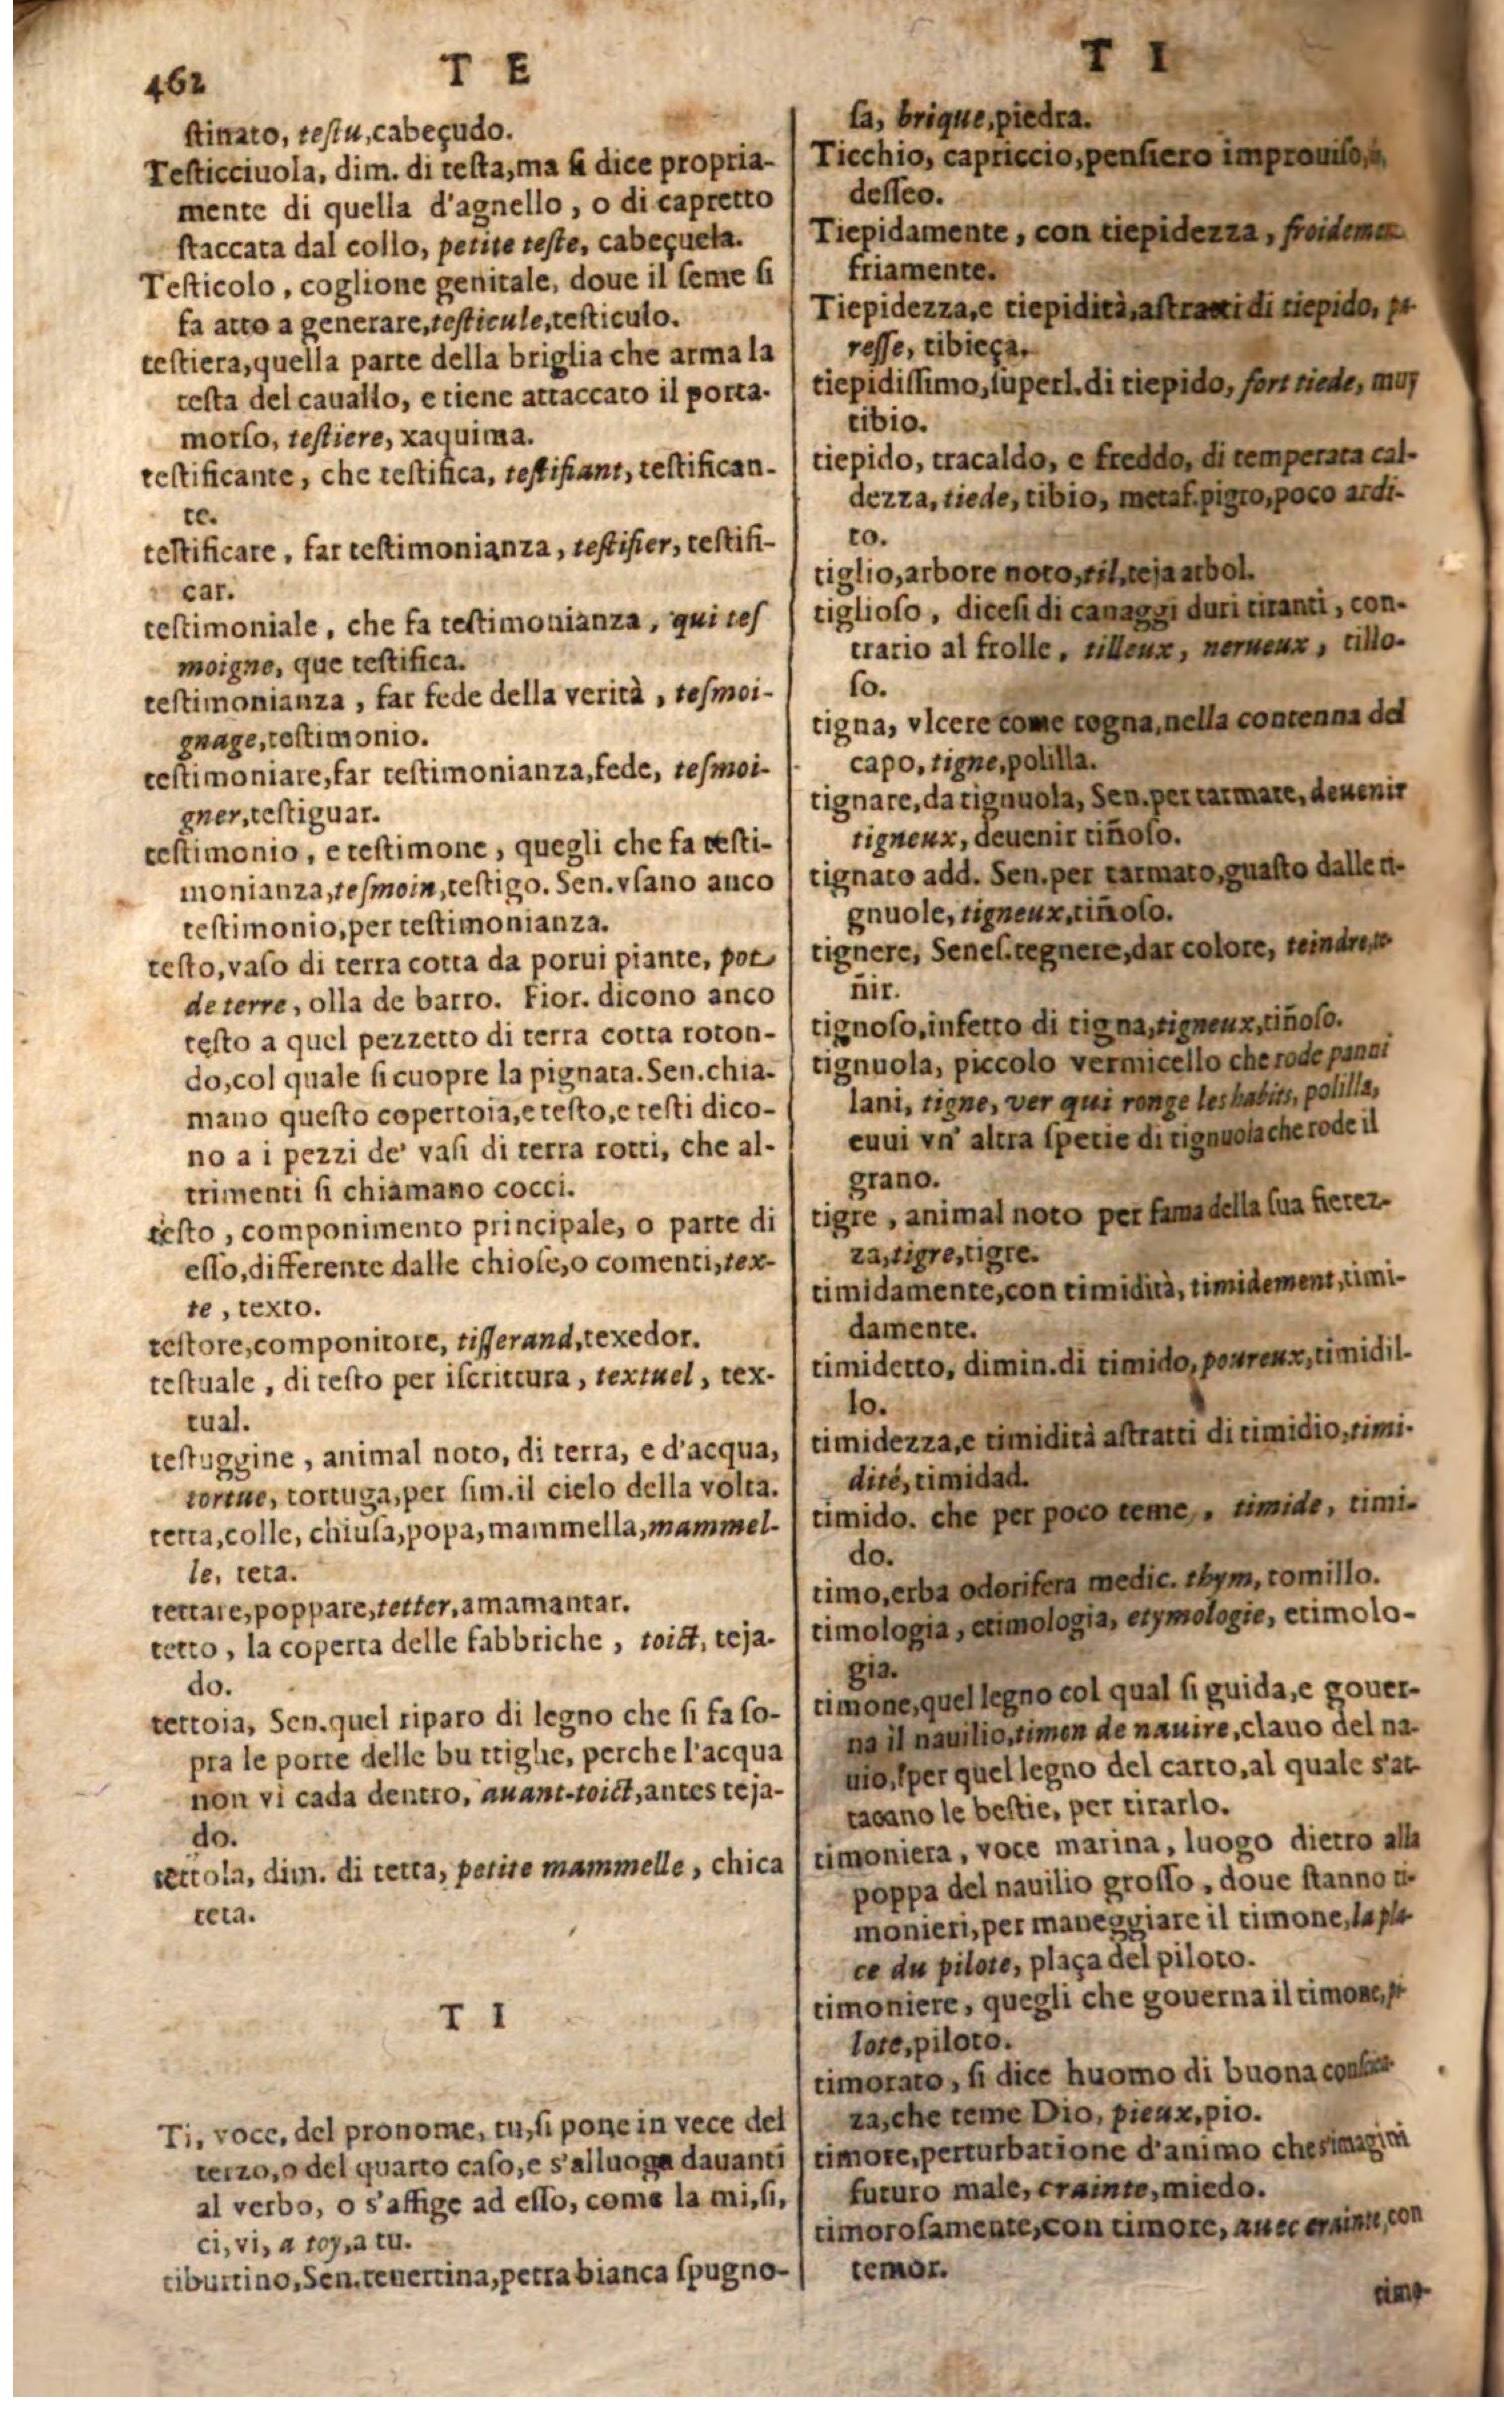 462
T E
ſtinato, teſtu,cabeçudo.
Teſticciuola, dim. di teſta,ma ſi dice propria-
mente di quella d'agnello, o di capretto
ſtaccata dal collo, petite teſte, cabeçuela.
Teſticolo, coglione genitale, doue il ſeme ſi
fa atto a generare,teſticule,teſticulo.
teſtiera,quella parte della briglia che arma la
teſta del cauallo, e tiene attaccato il porta-
morſo, teſtiere, xaquima.
teſtificante, che teſtifica, teſtifiant, teſtifican-
te.
teſtificare, far teſtimonianza, teſtifier, teſtifi-
car.
teſtimoniale, che fa teſtimonianza, qui teſ
moigne, que teſtifica.
teſtimonianza, far fede della verità, teſmoi-
gnage,teſtimonio.
teſtimoniare,far teſtimonianza,fede, teſmoi-
gner,teſtiguar.
teſtimonio, e teſtimone, quegli che fa teſti-
monianza,teſmoin,teſtigo. Sen.vſano anco
teſtimonio,per teſtimonianza.
teſto,vaſo di terra cotta da porui piante, pot
de terre, olla de barro. Fior. dicono anco
teſto a quel pezzetto di terra cotta roton-
do,col quale ſi cuopre la pignata.Sen.chia-
mano queſto copertoia,e teſto,e teſti dico-
no a i pezzi de' vaſi di terra rotti, che al-
trimenti ſi chiamano cocci.
teſto, componimento principale, o parte di
eſſo,differente dalle chioſe,o comenti,tex-
te, texto.
teſtore,componitore, tiſſerand,texedor.
teſtuale, di teſto per iſcrittura, textuel, tex-
tual.
teſtuggine, animal noto, di terra, e d'acqua,
tortue, tortuga,per ſim.il cielo della volta.
tetta,colle, chiuſa,popa,mammella,mammel-
le, teta.
tettare,poppare,tetter,amamantar.
tetto, la coperta delle fabbriche, toict, teja-
do.
tettoia, Sen.quel riparo di legno che ſi fa ſo-
pra le porte delle bu ttighe, perche l'acqua
non vi cada dentro, auant-toict,antes teja-
do.
tettola, dim. di tetta, petite mammelle, chica
teta.
T I
Ti, voce, del pronome, tu,ſi pone in vece del
terzo,o del quarto caſo,e s'alluoga dauanti
al verbo, o s'affige ad eſſo, come la mi,ſi,
ci,vi, a toy,a tu.
tiburtino,Sen.teuertina,petra bianca ſpugno-
T I
ſa, brique,piedra.
Ticchio, capriccio,penſiero improuiſo,
deſſeo.
Tiepidamente, con tiepidezza, froidemen
friamente.
Tiepidezza,e tiepidità,aſtratti di tiepido, pa-
reſſe, tibieça.
tiepidiſſimo,ſuperl.di tiepido, fort tiede, muy
tibio.
tiepido, tracaldo, e freddo, di temperata cal-
dezza, tiede, tibio, metaf.pigro,poco ardi-
to.
tiglio,arbore noto,til,teja arbol.
tiglioſo, diceſi di canaggi duri tiranti, con-
trario al frolle, tilleux, nerueux, tillo-
ſo.
tigna, vlcere come rogna,nella contenna del
capo, tigne,polilla.
tignare,da tignuola, Sen.per tarmare, deuenir
tigneux, deuenir tiñoſo.
tignato add. Sen.per tarmato,guaſto dalle ti-
gnuole, tigneux,tiñoſo.
tignere, Seneſ.tegnere,dar colore, teindre,te-
ñir.
tignoſo,infetto di tigna,tigneux,tiñoſo.
tignuola, piccolo vermicello che rode panni
lani, tigne, ver qui ronge les habits, polilla,
euui vn' altra ſpetie di tignuola che rode il
grano.
tigre, animal noto per fama della ſua fierez-
za,tigre,tigre.
timidamente,con timidità, timidement,timi-
damente.
timidetto, dimin.di timido, poureux,timidil-
lo.
timidezza,e timidità aſtratti di timidio,timi-
dité,timidad.
timido. che per poco teme, timide, timi-
do.
timo,erba odorifera medic. thym, tomillo.
timologia, etimologia, etymologie, etimolo-
gia.
timone,quel legno col qual ſi guida,e gouer-
na il nauilio,timon de nauire,clauo del na-
uio, per quel legno del carro,al quale s'at-
tacano le beſtie, per tirarlo.
timoniera, voce marina, luogo dietro alla
poppa del nauilio groſſo, doue ſtanno ti-
monieri,per maneggiare il timone,la pla-
ce du pilote, plaça del piloto.
timoniere, quegli che gouerna il timone,pi-
lote,piloto.
timorato, ſi dice huomo di buona
za,che teme Dio, pieux,pio.
timore,perturbatione d'animo che s'imagini
futuro male, crainte,miedo.
timoroſamente,con timore, auec crainte,con
temor.
timo-